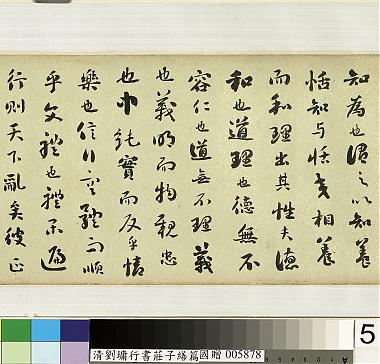 知為也謂之以知養
恬知與恬交相養
而和理出其性夫德
和也道理也德無不
容仁也道無不理義
也義明而物親忠
也中純實而反乎情
樂也信行容體而順
乎文禮也禮樂遍
行則天下亂矣彼正
5
清劉墉行書莊子繕性篇國贈 005878